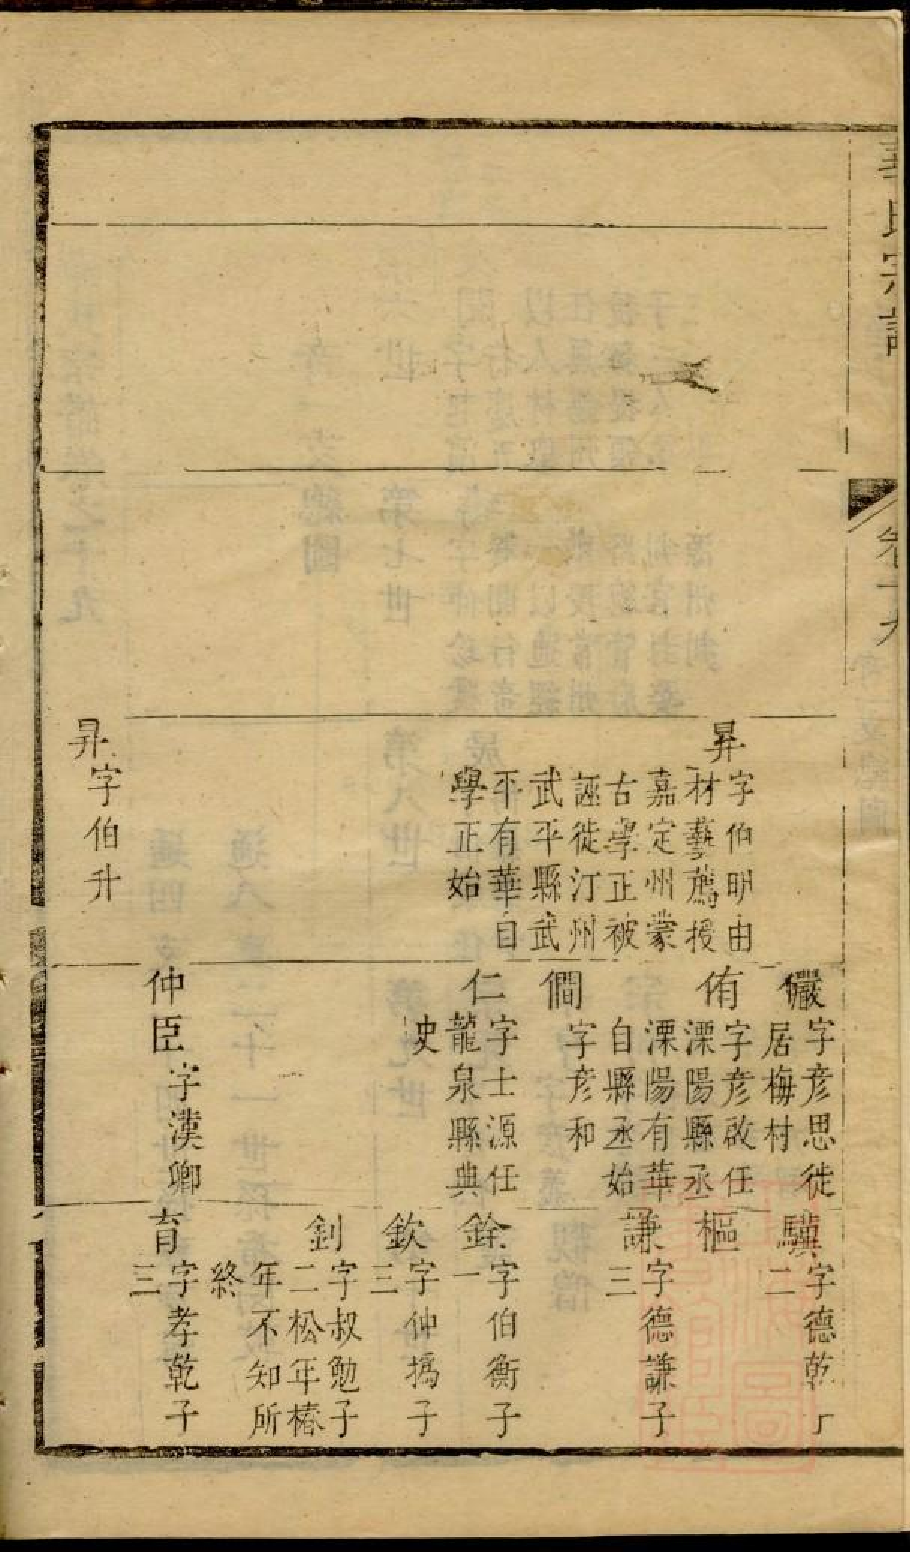 華氏宗譜
卷十九
昇
字伯明由
材藝薦授
嘉定州蒙
古學正被
誣徙汀州
武平縣武
平有華自
學正始
昇
字伯升
儼
字彦思徙
居梅村
侑
字彦啟任
溧陽縣丞
溧陽有華
自縣丞始
僩
字彦和
仁
字士源任
龍泉縣典
史
仲臣
字漢卿
驥
字德乾子
二
樞
謙
字德謙子
三
銓
字伯衡子
一
欽
字仲撝子
三
釗
字叔勉子
二松年椿
年不知所
終
育
字孝乾子
三